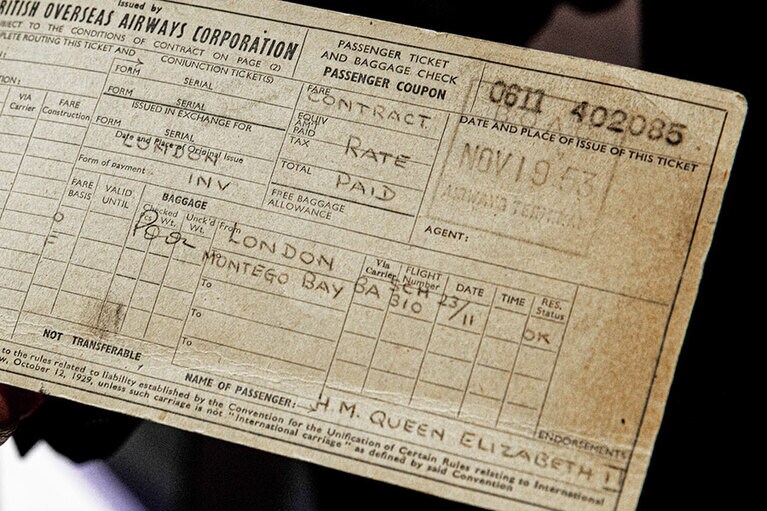 Issued by
BRITISH OVERSEAS AIRWAYS CORPORATION
SUBJECT TO THE CONDITIONS OF CONTRACT ON PAGE (2)
COMPLETE ROUTING THIS TICKET AND
CONJUNCTION TICKET(S)
FORM SERIAL
FORM SERIAL
ISSUED IN EXCHANGE FOR
FORM SERIAL
Date and Place of Original Issue
LONDON
Form of payment
INV
VIA Carrier
FARE Construction
PASSENGER TICKET
AND BAGGAGE CHECK
PASSENGER COUPON
FARE
CONTRACT
EQUIV AMT PAID
RATE
TAX
PAID
TOTAL
FREE BAGGAGE ALLOWANCE
0611 402085
DATE AND PLACE OF ISSUE OF THIS TICKET
NOV 19 53
AIRWAYS TERMINAL
AGENT:
FARE BASIS
VALID UNTIL
BAGGAGE
Checked Pcs Wt.
Unck'd Wt.
From LONDON
Via Carrier
FLIGHT Number
DATE
TIME
RES. Status
To MONTEGO BAY BA SCH 310 23/11 OK
To
To
To
NOT TRANSFERABLE
NAME OF PASSENGER: H.M. QUEEN ELIZABETH II
ENDORSEMENTS
to the rules relating to liability established by the Convention for the Unification of Certain Rules relating to International
October 12, 1929, unless such carriage is not "International carriage" as defined by said Convention